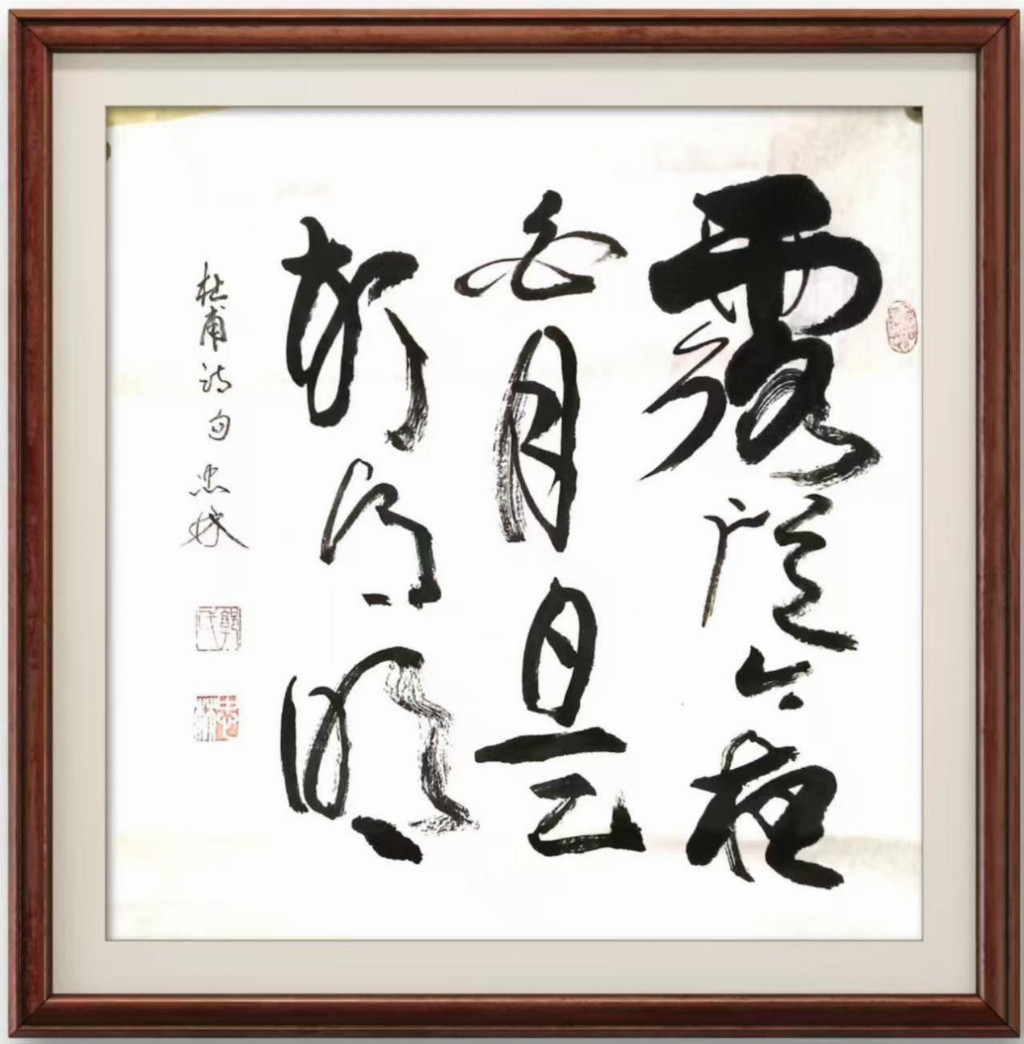 露從今夜
白月是
故鄉明
杜甫诗句 忠林